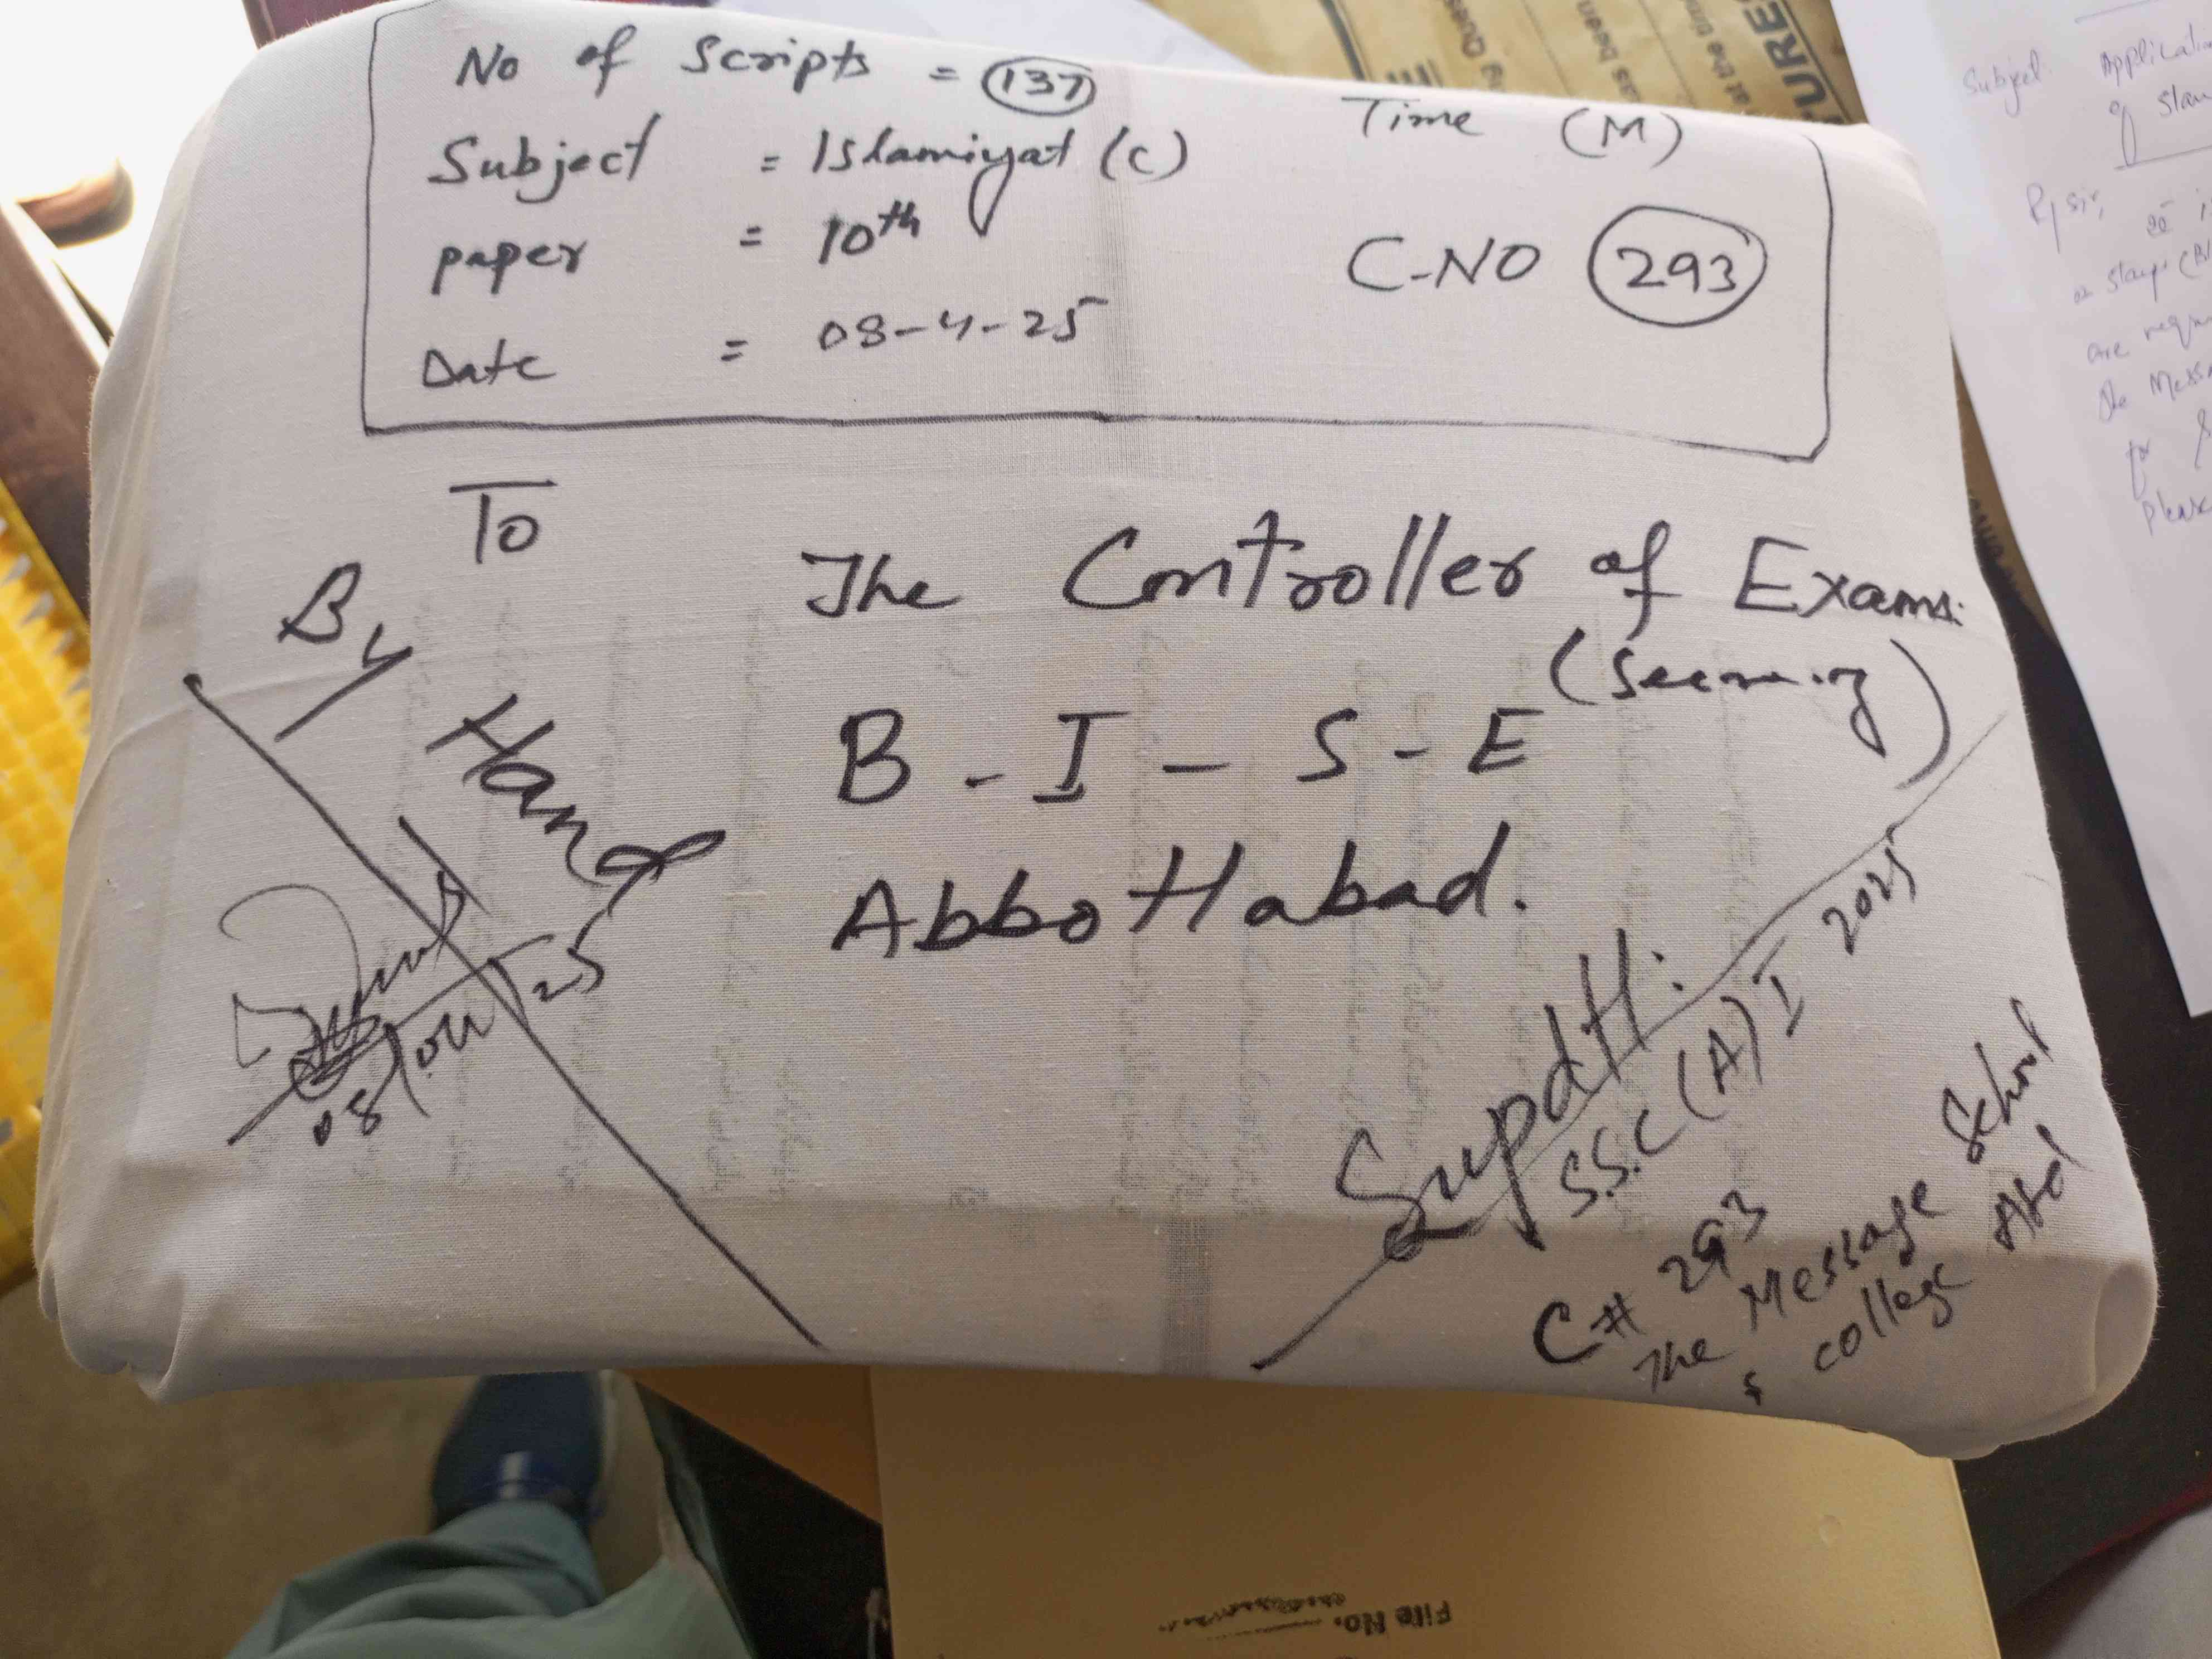 No of Scripts = 137
Subject = Islamiyat (C)
paper = 10th
Date = 08-4-25
Time (M)
C-NO 293
To
The Controller of Exams:
(Secrecy)
B - I - S - E
Abbottabad.
By Hand
08/04/25
Supdtt:
S.S.C (A) I 2025
C# 293
The Message School
& college Atd
Subject: Application
of
R/sir,
are
the
for
Please
TURE
at the
as been
File No.